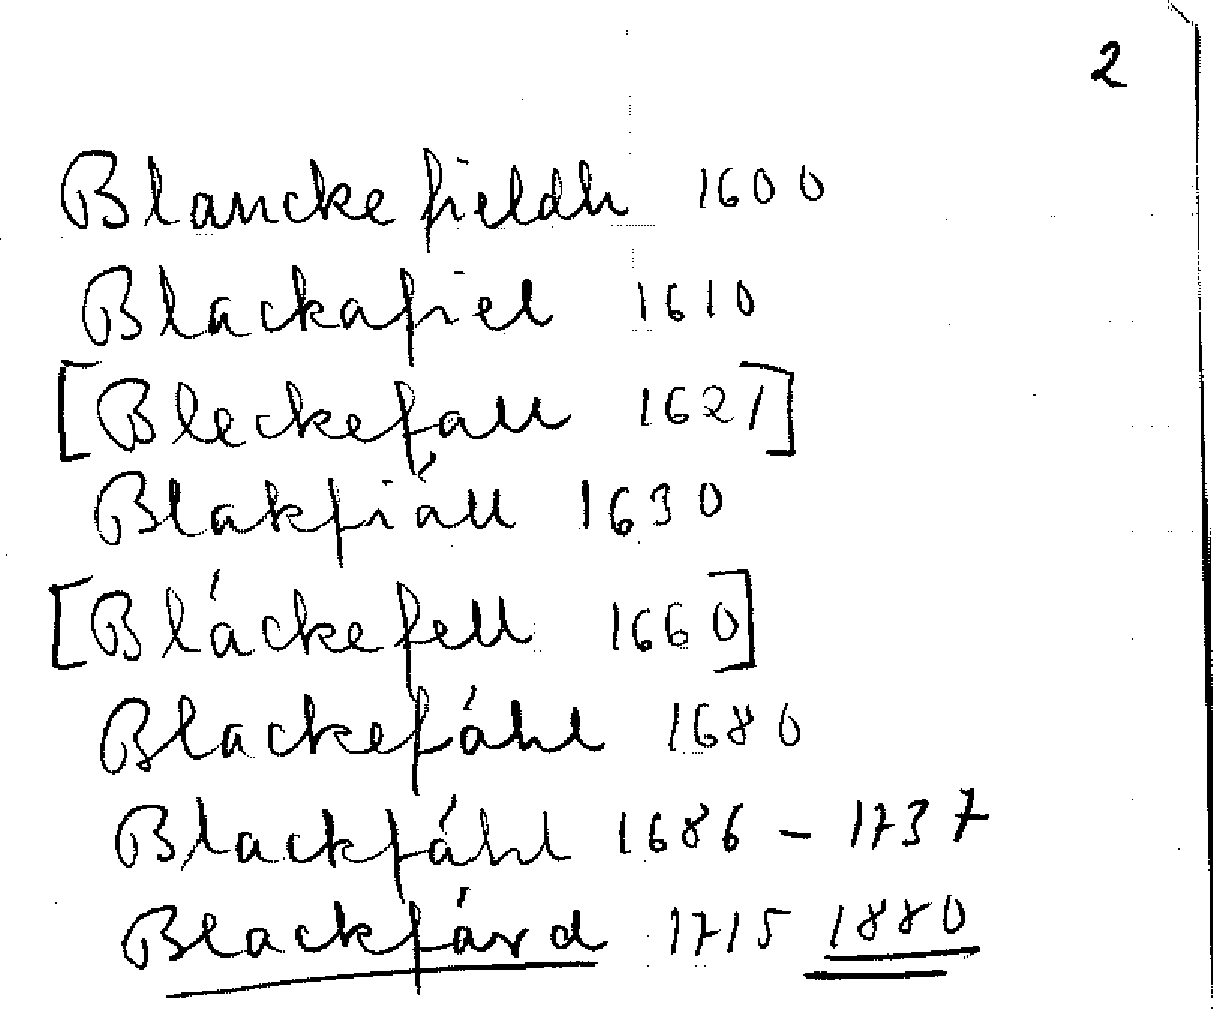 2
Blanckefieldh 1600
Blackafiel 1610
[Bleckefall 1627]
Blakfiáll 1630
[Bláckefell 1660]
Blackefáhl 1680
Blackfáhl 1686 – 1737
Blackfárd 1715 1880